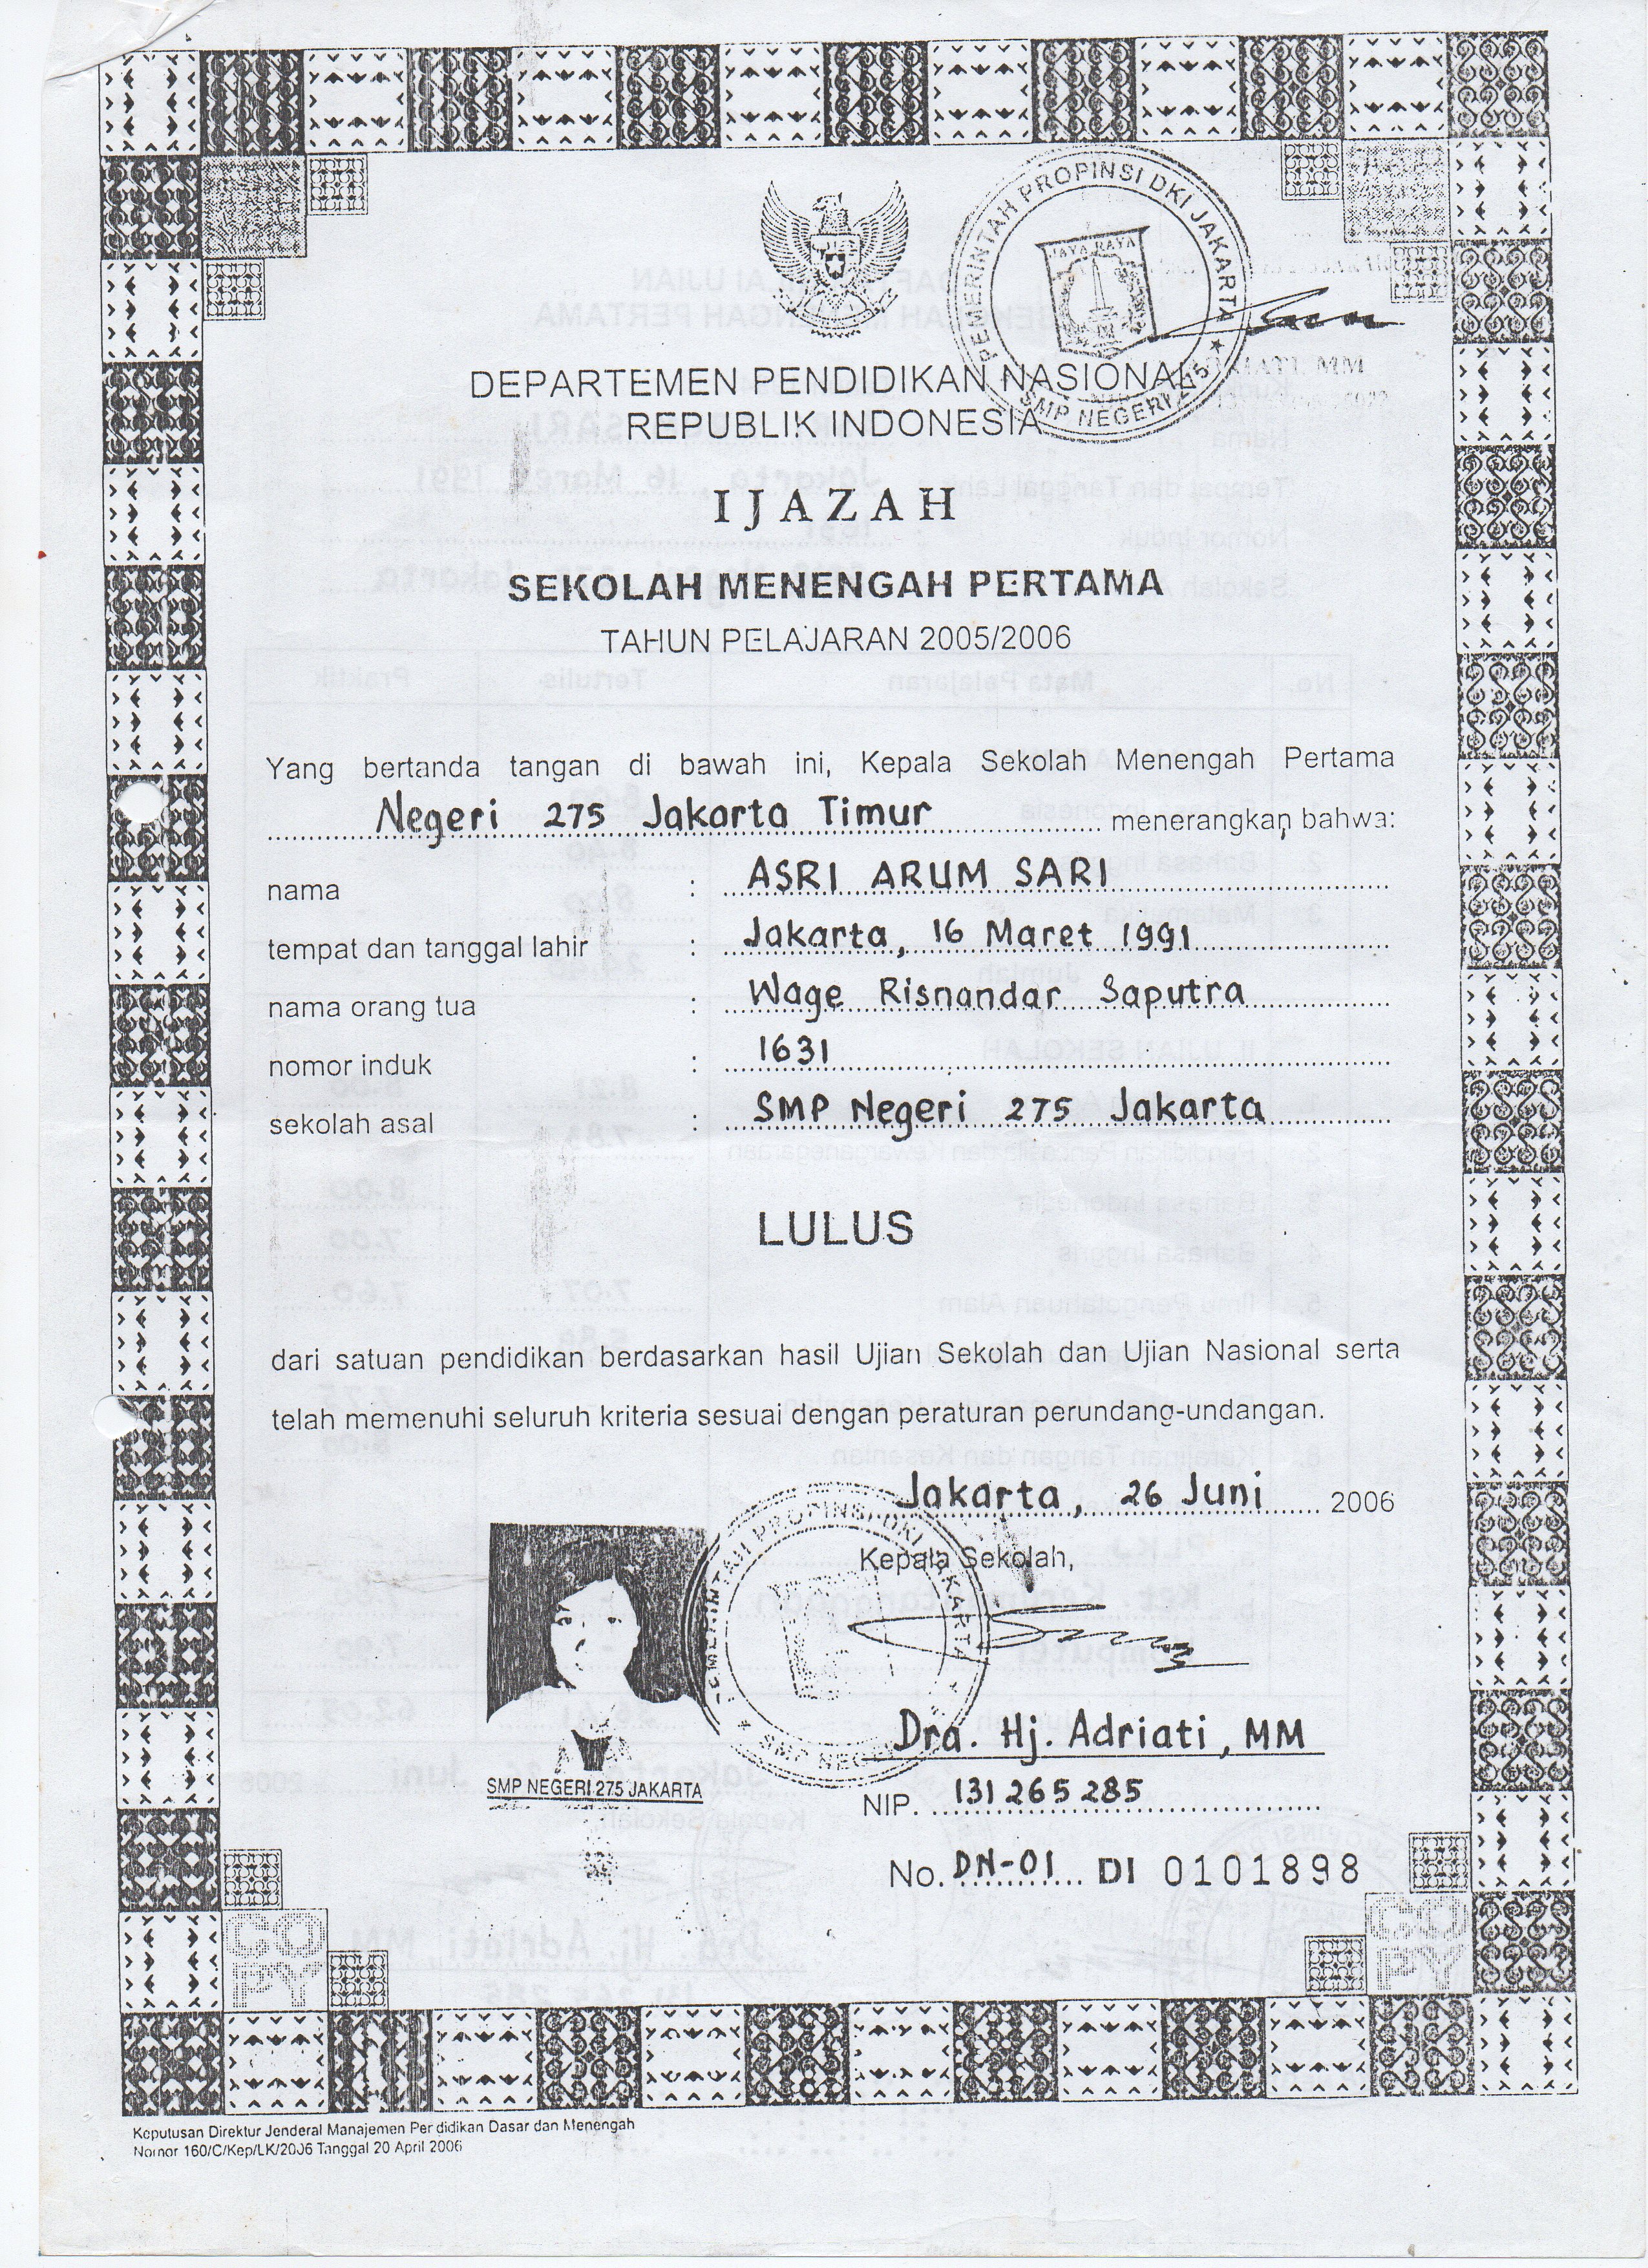 PEMERINTAH PROPINSI DKI JAKARTA
JAYA RAYA
SMP NEGERI 275
DEPARTEMEN PENDIDIKAN NASIONAL
REPUBLIK INDONESIA
IJAZAH
SEKOLAH MENENGAH PERTAMA
TAHUN PELAJARAN 2005/2006
Yang bertanda tangan di bawah ini, Kepala Sekolah Menengah Pertama
Negeri 275 Jakarta Timur menerangkan bahwa:
nama : ASRI ARUM SARI
tempat dan tanggal lahir : Jakarta, 16 Maret 1991
nama orang tua : Wage Risnandar Saputra
nomor induk : 1631
sekolah asal : SMP Negeri 275 Jakarta
LULUS
dari satuan pendidikan berdasarkan hasil Ujian Sekolah dan Ujian Nasional serta
telah memenuhi seluruh kriteria sesuai dengan peraturan perundang-undangan.
Jakarta, 26 Juni 2006
Kepala Sekolah,
PEMERINTAH PROPINSI DKI JAKARTA
SMP NEGERI
Dra. Hj. Adriati, MM
SMP NEGERI 275 JAKARTA
NIP. 131 265 285
No. DN-01 DI 0101898
COPY
COPY
Keputusan Direktur Jenderal Manajemen Pendidikan Dasar dan Menengah
Nomor 160/C/Kep/LK/2006 Tanggal 20 April 2006